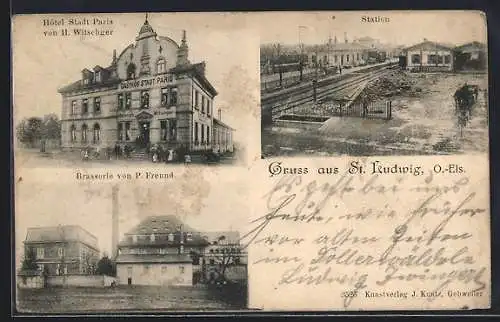 Hôtel Stadt Paris
von H. Witschger
GASTHOF STADT PARIS
Station
Brasserie von P. Freund
Gruss aus St. Ludwig, O.-Els.
Es geht bei uns
heute, wie früher
vor alten Zeiten
im
Ludwig
3526 Kunstverlag J. Kuntz, Gebweiler